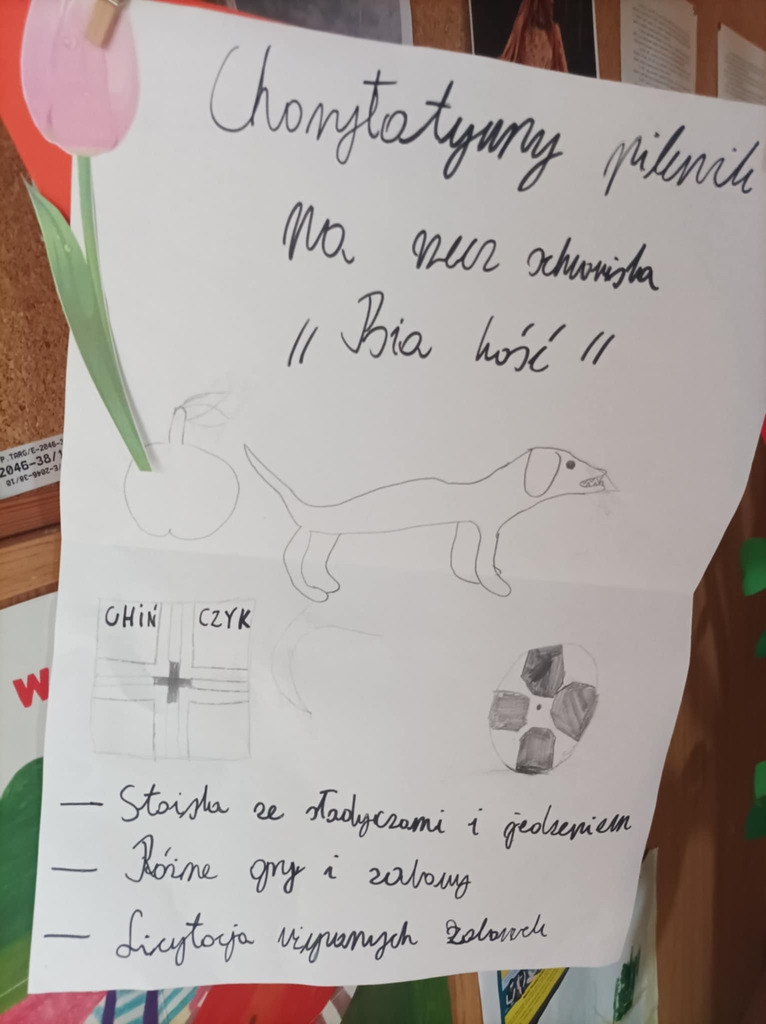 Charytatywny piknik
na rzecz schroniska
„ Bia kość "
CHIŃ CZYK
— Stoiska ze słodyczami i jedzeniem
— Różne gry i zabawy
— Licytacja używanych zabawek
P.TARG/E-2046-3
2046-38/1
W